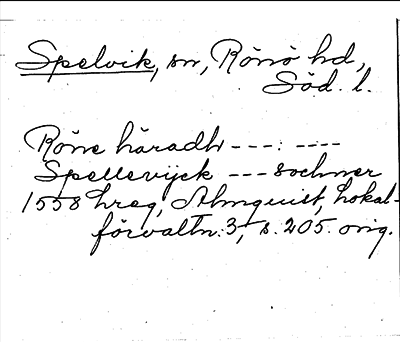 Spelvik, sn, Rönö hd,
Söd. l.
Röne häradh ---: ----
Spellevijck --- sochner
1558 hreg, Almquist, Lokal-
förvaltn. 3, s. 205. orig.